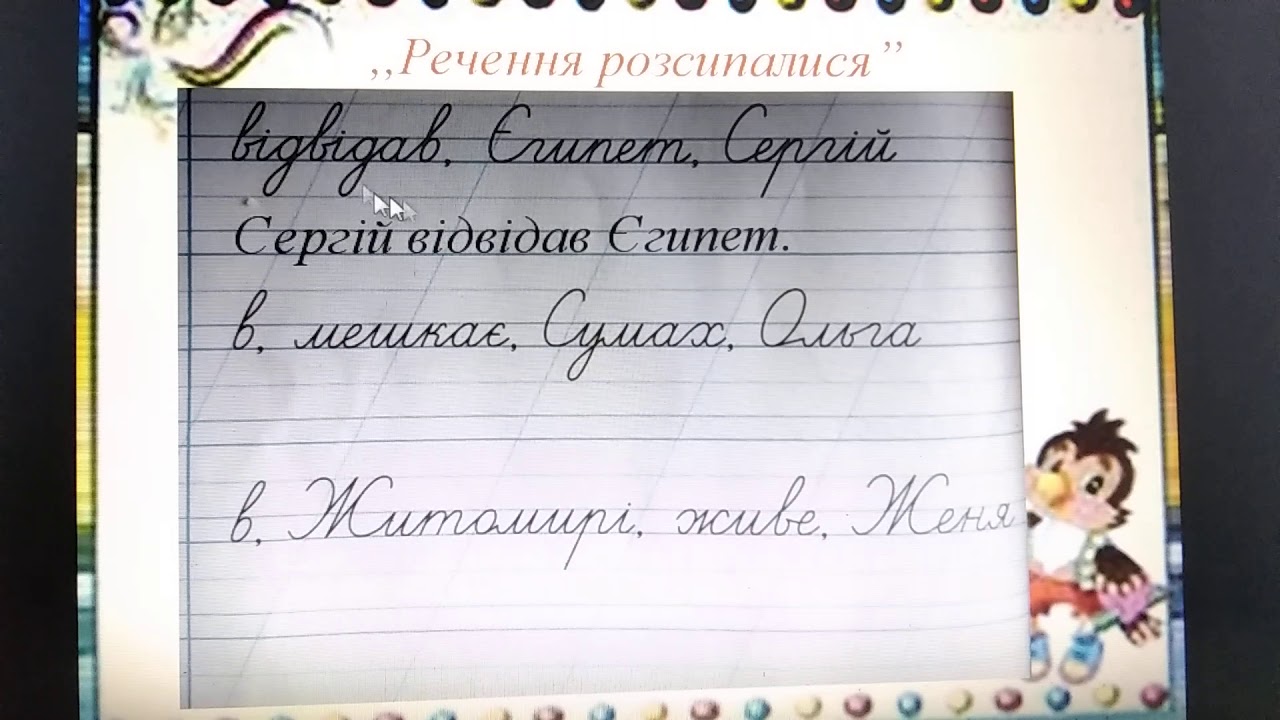 ,,Речення розсипалися”
відвідав, Єгипет, Сергій
Сергій відвідав Єгипет.
в, мешкає, Сумах, Ольга
в, Житомирі, живе, Женя